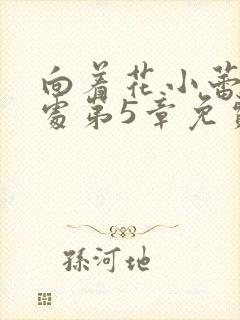 向着花小蕾
处第5章免费
孫河地